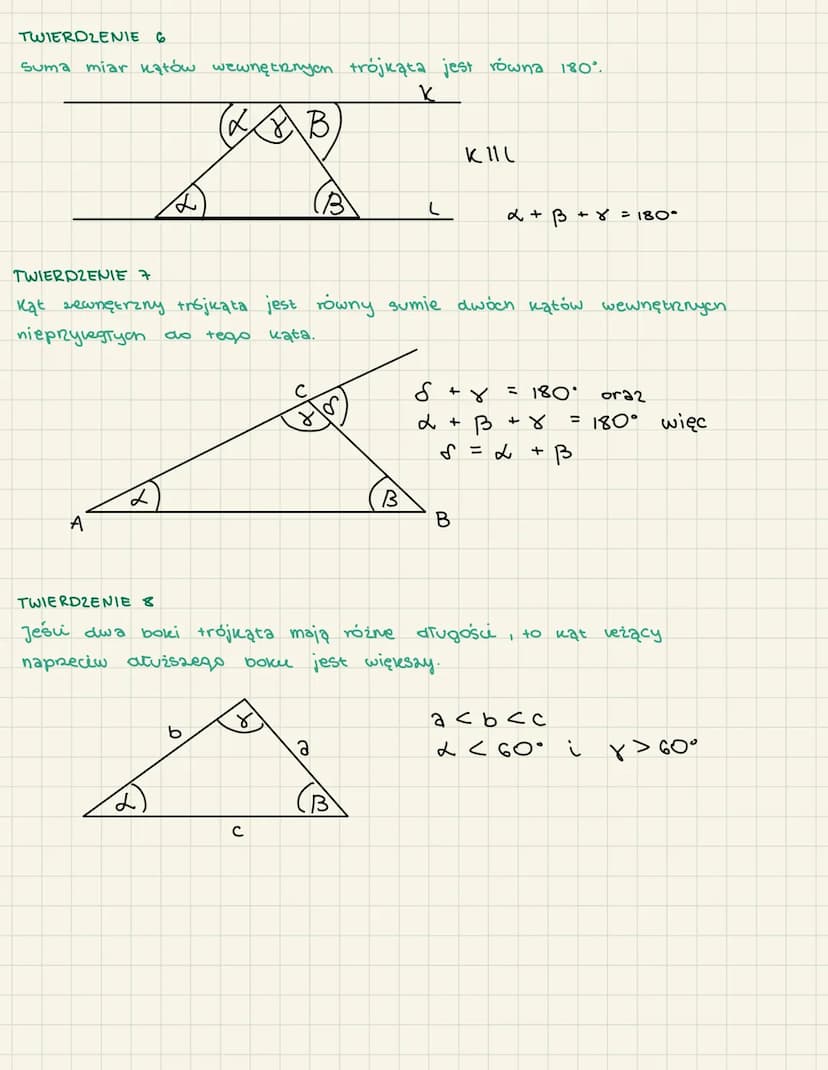 TWIERDZENIE 6
Suma miar kątów wewnętrznych trójkąta jest równa 180°.
K
α γ β
K || L
α β
L
α + β + γ = 180°
TWIERDZENIE 7
Kąt zewnętrzny trójkąta jest równy sumie dwóch kątów wewnętrznych
nieprzyległych do tego kąta.
C
γ δ
δ + γ = 180° oraz
α + β + γ = 180° więc
δ = α + β
α β
A B
TWIERDZENIE 8
Jeśli dwa boki trójkąta mają różne długości, to kąt leżący
naprzeciw dłuższego boku jest większy.
γ
b a
a < b < c
α < 60° i γ > 60°
α β
c